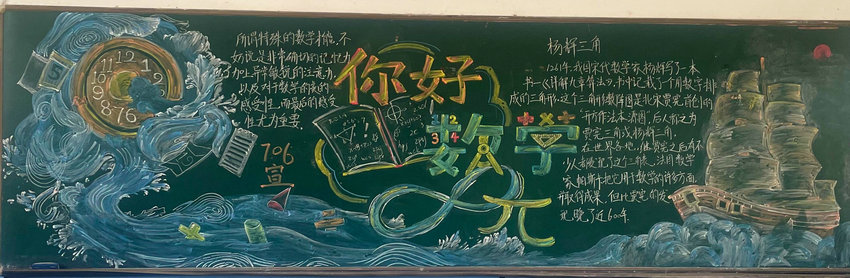 所谓特殊的数学才能,不
如说是非常确切的记忆力
加上异常敏锐的注意力,
以及对于数学的美的
感受性,而美的感受
性尤为重要。
706
宣
你好
数字
杨辉三角
1261年,我国宋代数学家杨辉写了一本
书—《详解九章算法》。书中记载了一个用数字排
成的三角形,这个三角形数阵图是北宋贾宪首创的
“开方作法本源图”,后人称之为
贾宪三角或杨辉三角。
在世界各地,继贾宪之后有不
少人都发现了这个三角。法国数学
家帕斯卡把它用于数学的许多方面
并取得成果,但比贾宪的发
现晚了近600年